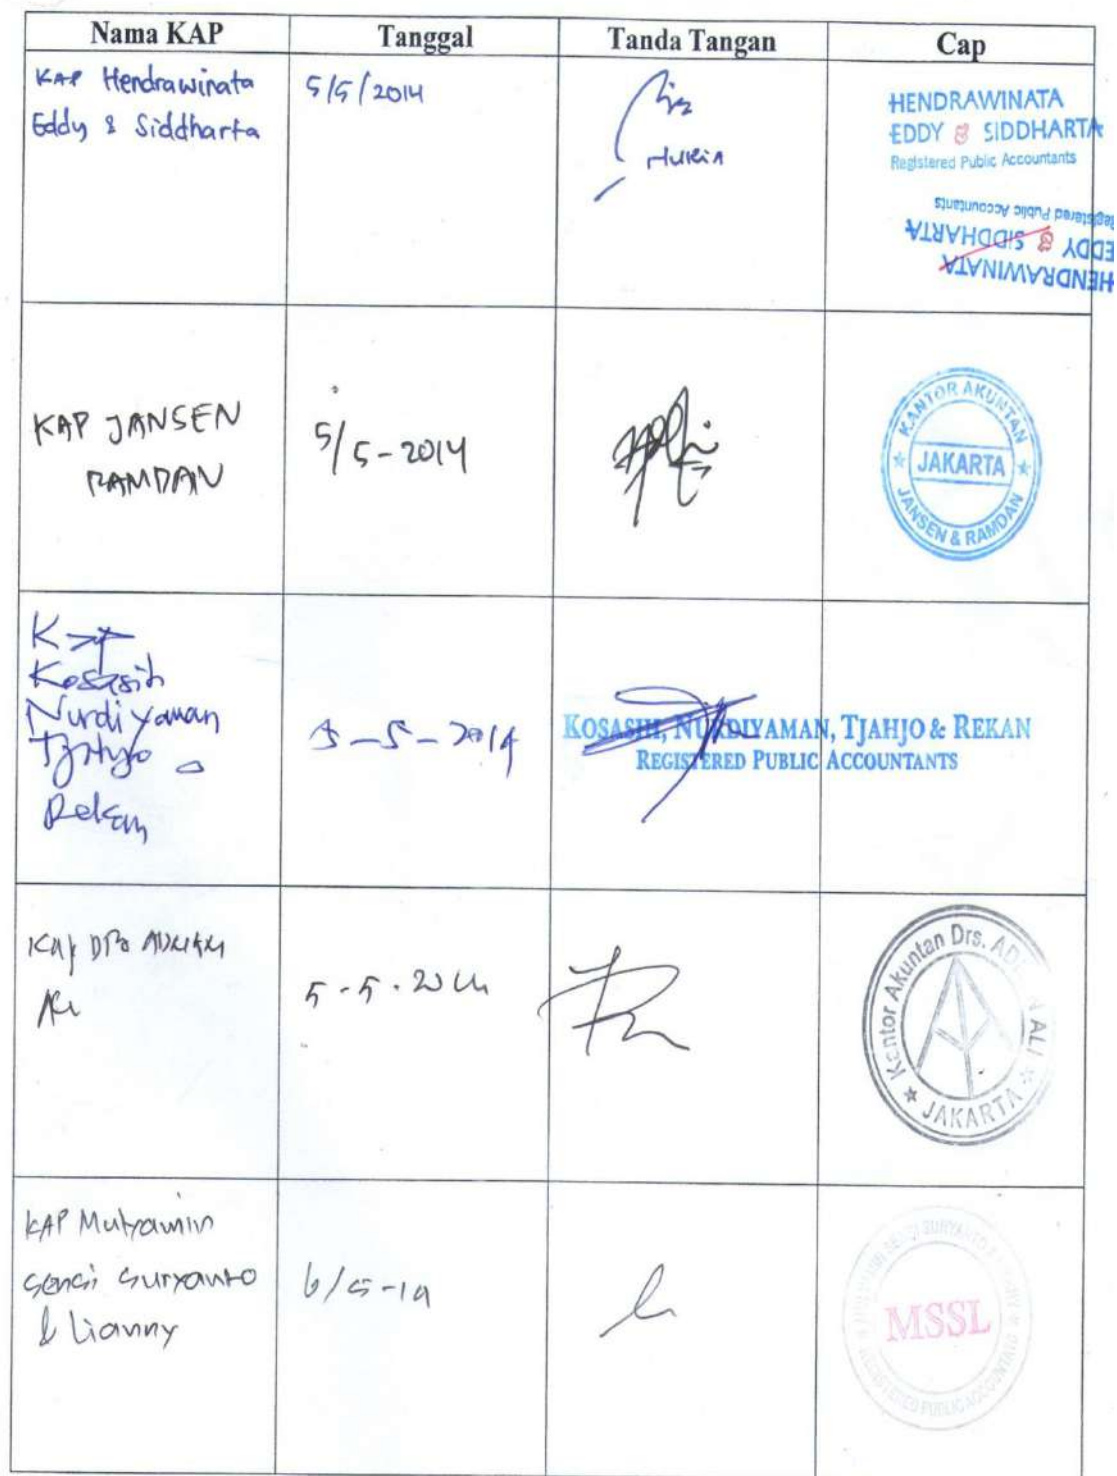 Nama KAP Tanggal Tanda Tangan Cap
KAP Hendrawinata
Eddy & Siddharta
5/5/2014
HENDRAWINATA
EDDY & SIDDHARTA
Registered Public Accountants
HENDRAWINATA
EDDY & SIDDHARTA
Registered Public Accountants
KAP JANSEN
RAMDAN
5/5-2014
KANTOR AKUNTAN
JAKARTA
JANSEN & RAMDAN
KAP
Kosasih
Nurdiyaman
Tjahjo &
Rekan
5-5-2014
KOSASIH, NURDIYAMAN, TJAHJO & REKAN
REGISTERED PUBLIC ACCOUNTANTS
KAP Drs
5-5-2014
Kantor Akuntan Drs. AD
ALI
JAKARTA
KAP Mulyamin
Sensi Suryanto
& Lianny
6/5-14
MSSL
REGISTERED PUBLIC ACCOUNTANTS